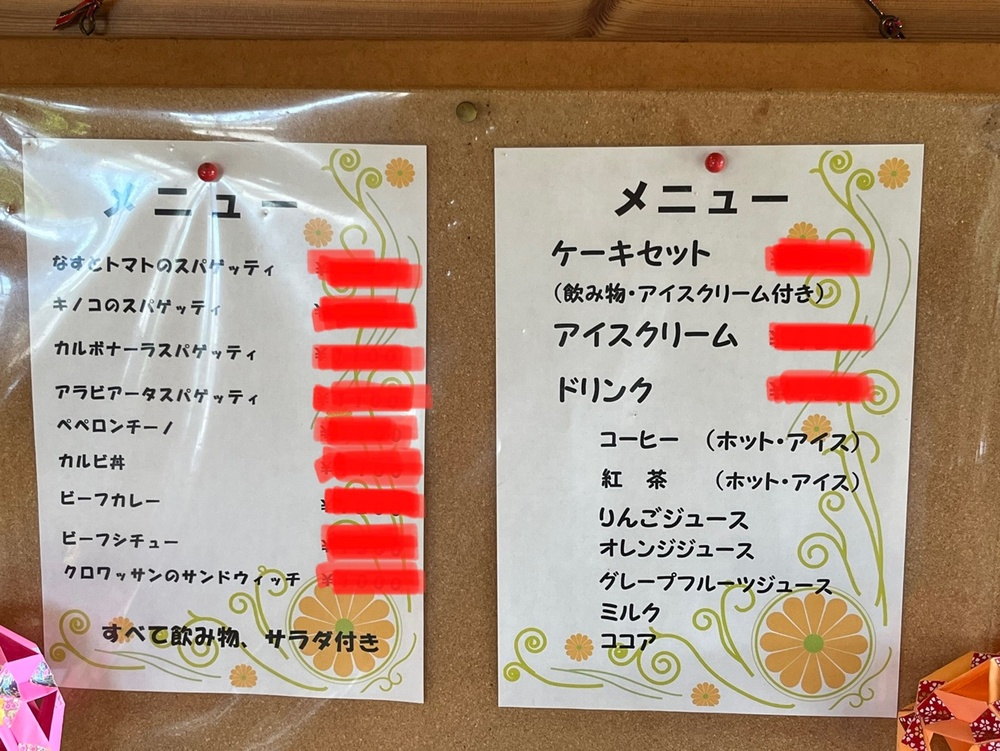 メニュー
なすとトマトのスパゲッティ
キノコのスパゲッティ
カルボナーラスパゲッティ
アラビアータスパゲッティ
ペペロンチーノ
カルビ丼
ビーフカレー
ビーフシチュー
クロワッサンのサンドウィッチ
すべて飲み物、サラダ付き
メニュー
ケーキセット
(飲み物・アイスクリーム付き)
アイスクリーム
ドリンク
コーヒー (ホット・アイス)
紅 茶 (ホット・アイス)
りんごジュース
オレンジジュース
グレープフルーツジュース
ミルク
ココア